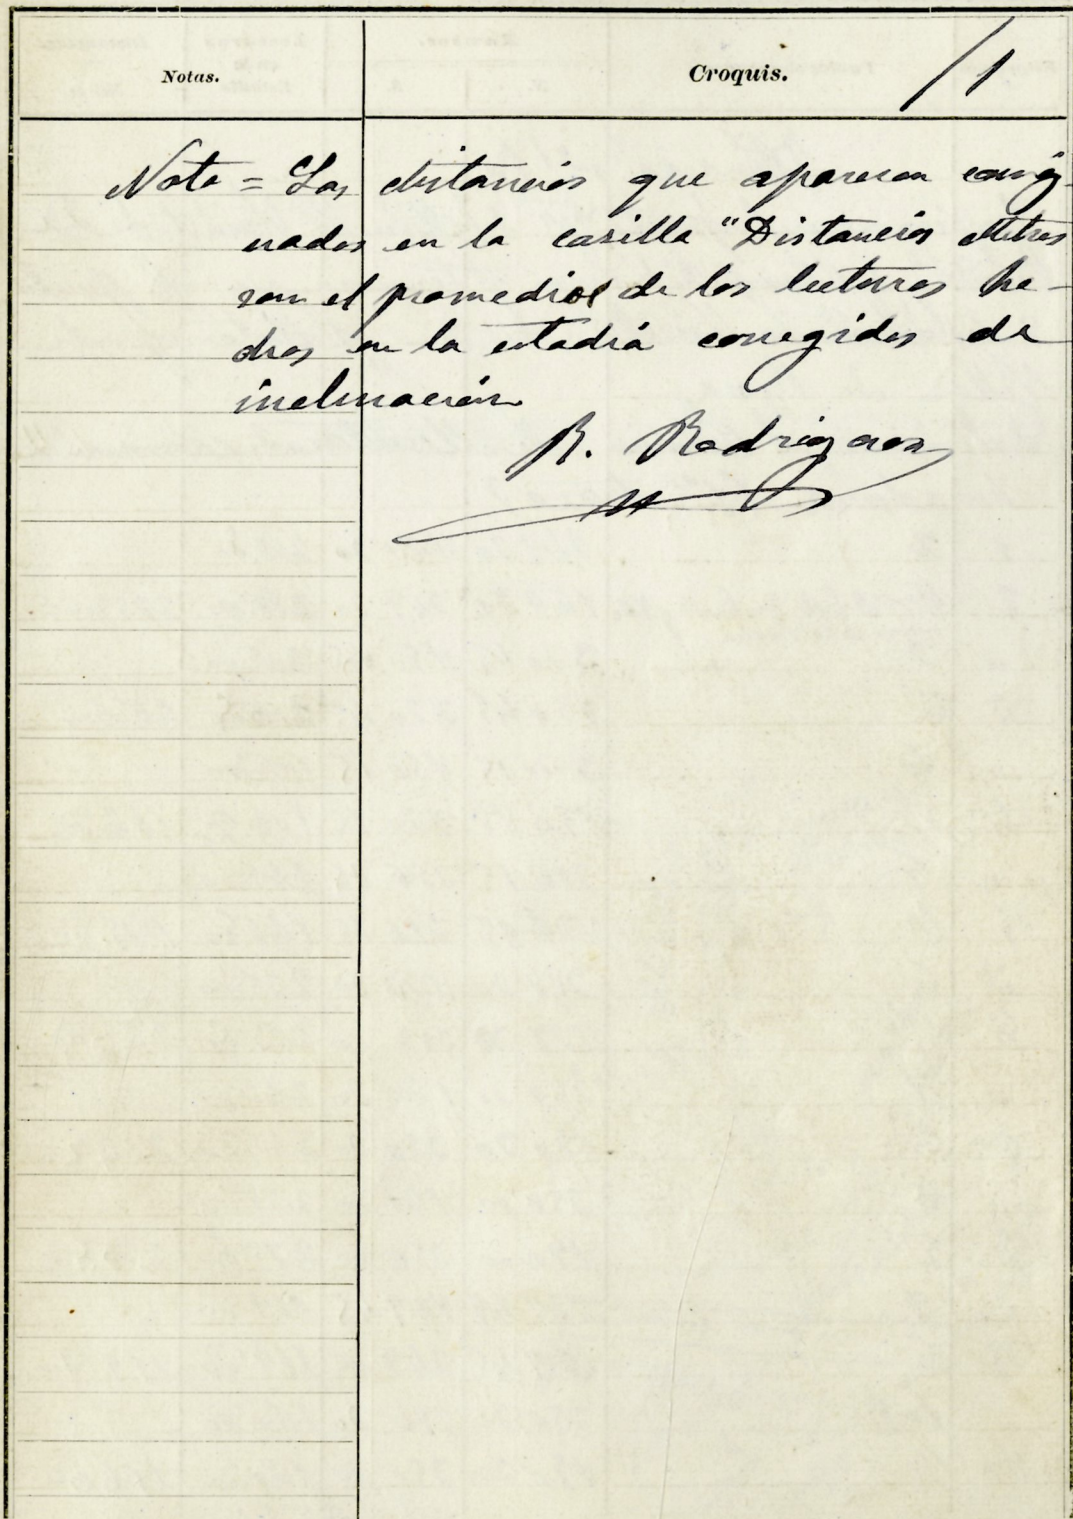 Notas. Croquis. /1
Nota = Las distancias que aparecen consig-
nadas en la casilla "Distancias Metros
son el promedio de las lecturas he-
chas en la estadia corregidas de
inclinación
R. Rodriguez